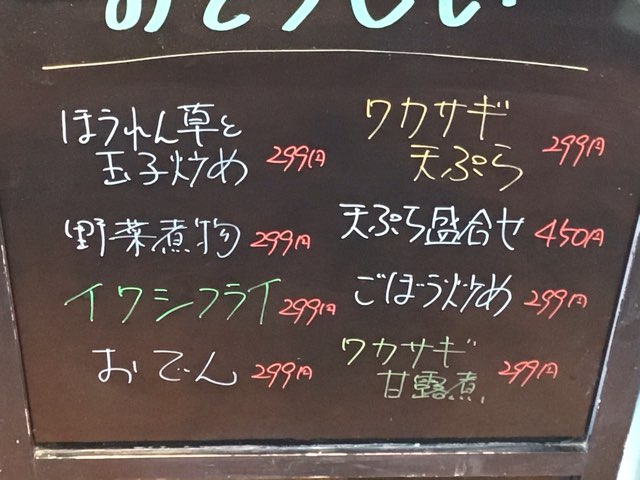 ほうれん草と
玉子炒め 299円
野菜煮物 299円
イワシフライ 299円
おでん 299円
ワカサギ
天ぷら 299円
天ぷら盛合せ 450円
ごぼう炒め 299円
ワカサギ
甘露煮 299円